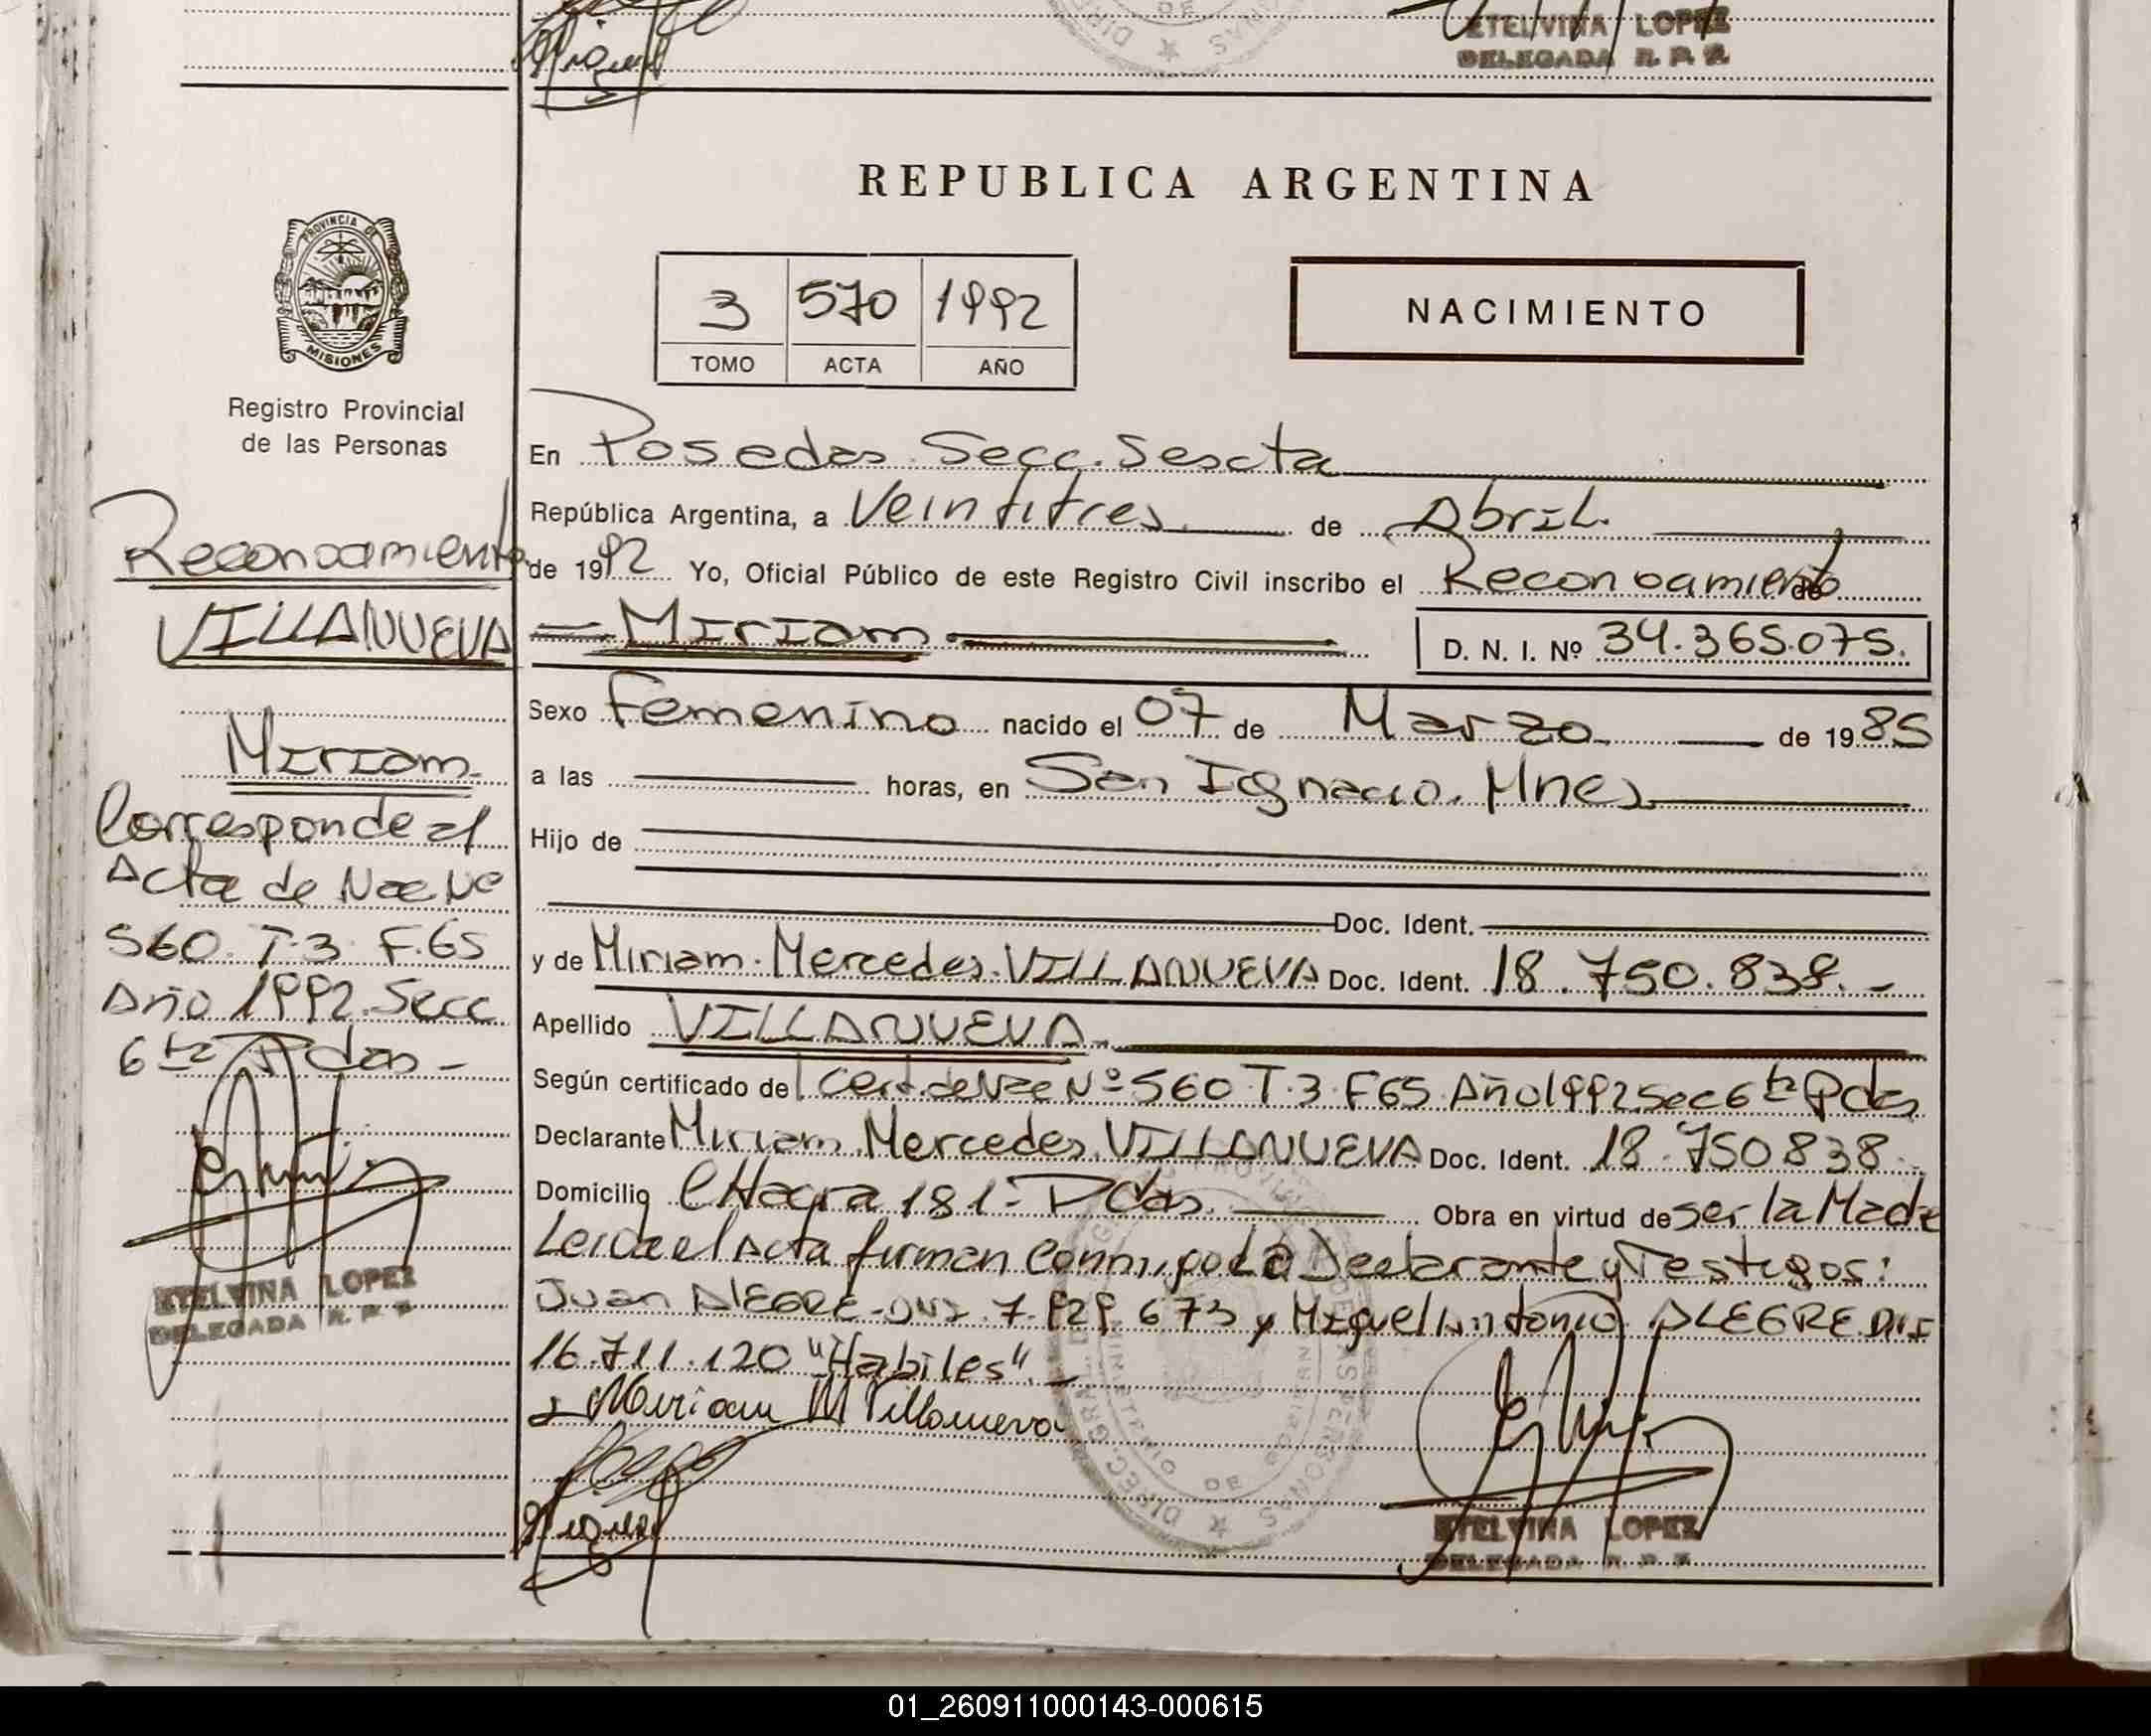 ETELVINA LOPEZ
DELEGADA R. P. P.
REPUBLICA ARGENTINA
PROVINCIA DE
MISIONES
3 570 1992
TOMO ACTA AÑO
NACIMIENTO
Registro Provincial
de las Personas
Reconocimiento
VILLANUEVA
Miriam
Corresponde al
Acta de Nac Nº
560. T.3 F.65
Año 1992. Secc
6ta Pdas -
ETELVINA LOPEZ
DELEGADA R. P. P.
En Posadas. Secc. Sescta
República Argentina, a Veintitres de Abril.
de 1992 Yo, Oficial Público de este Registro Civil inscribo el Reconocimiento de
Miriam D. N. I. Nº 34.365.075.
Sexo Femenino nacido el 07 de Marzo de 1985
a las horas, en San Ignacio. Mnes
Hijo de
Doc. Ident.
y de Miriam. Mercedes. VILLANUEVA Doc. Ident. 18.750.838.-
Apellido VILLANUEVA.
Según certificado del Cert. de Nac Nº 560 T.3 F65 Año 1992 Sec 6ta Pdas
Declarante Miriam Mercedes VILLANUEVA Doc. Ident. 18.750838.
Domicilio CHacra 181. Pdas. Obra en virtud de ser la Madre
Leida el Acta firman conmigo la Declarante y Testigos:
Juan ALEGRE DNI. 7.929 673 y Miguel Antonio ALEGRE DNI
16.711.120 "Habiles".
Miriam M Villanueva
Miguel
ETELVINA LOPEZ
DELEGADA R. P. P.
01_260911000143-000615